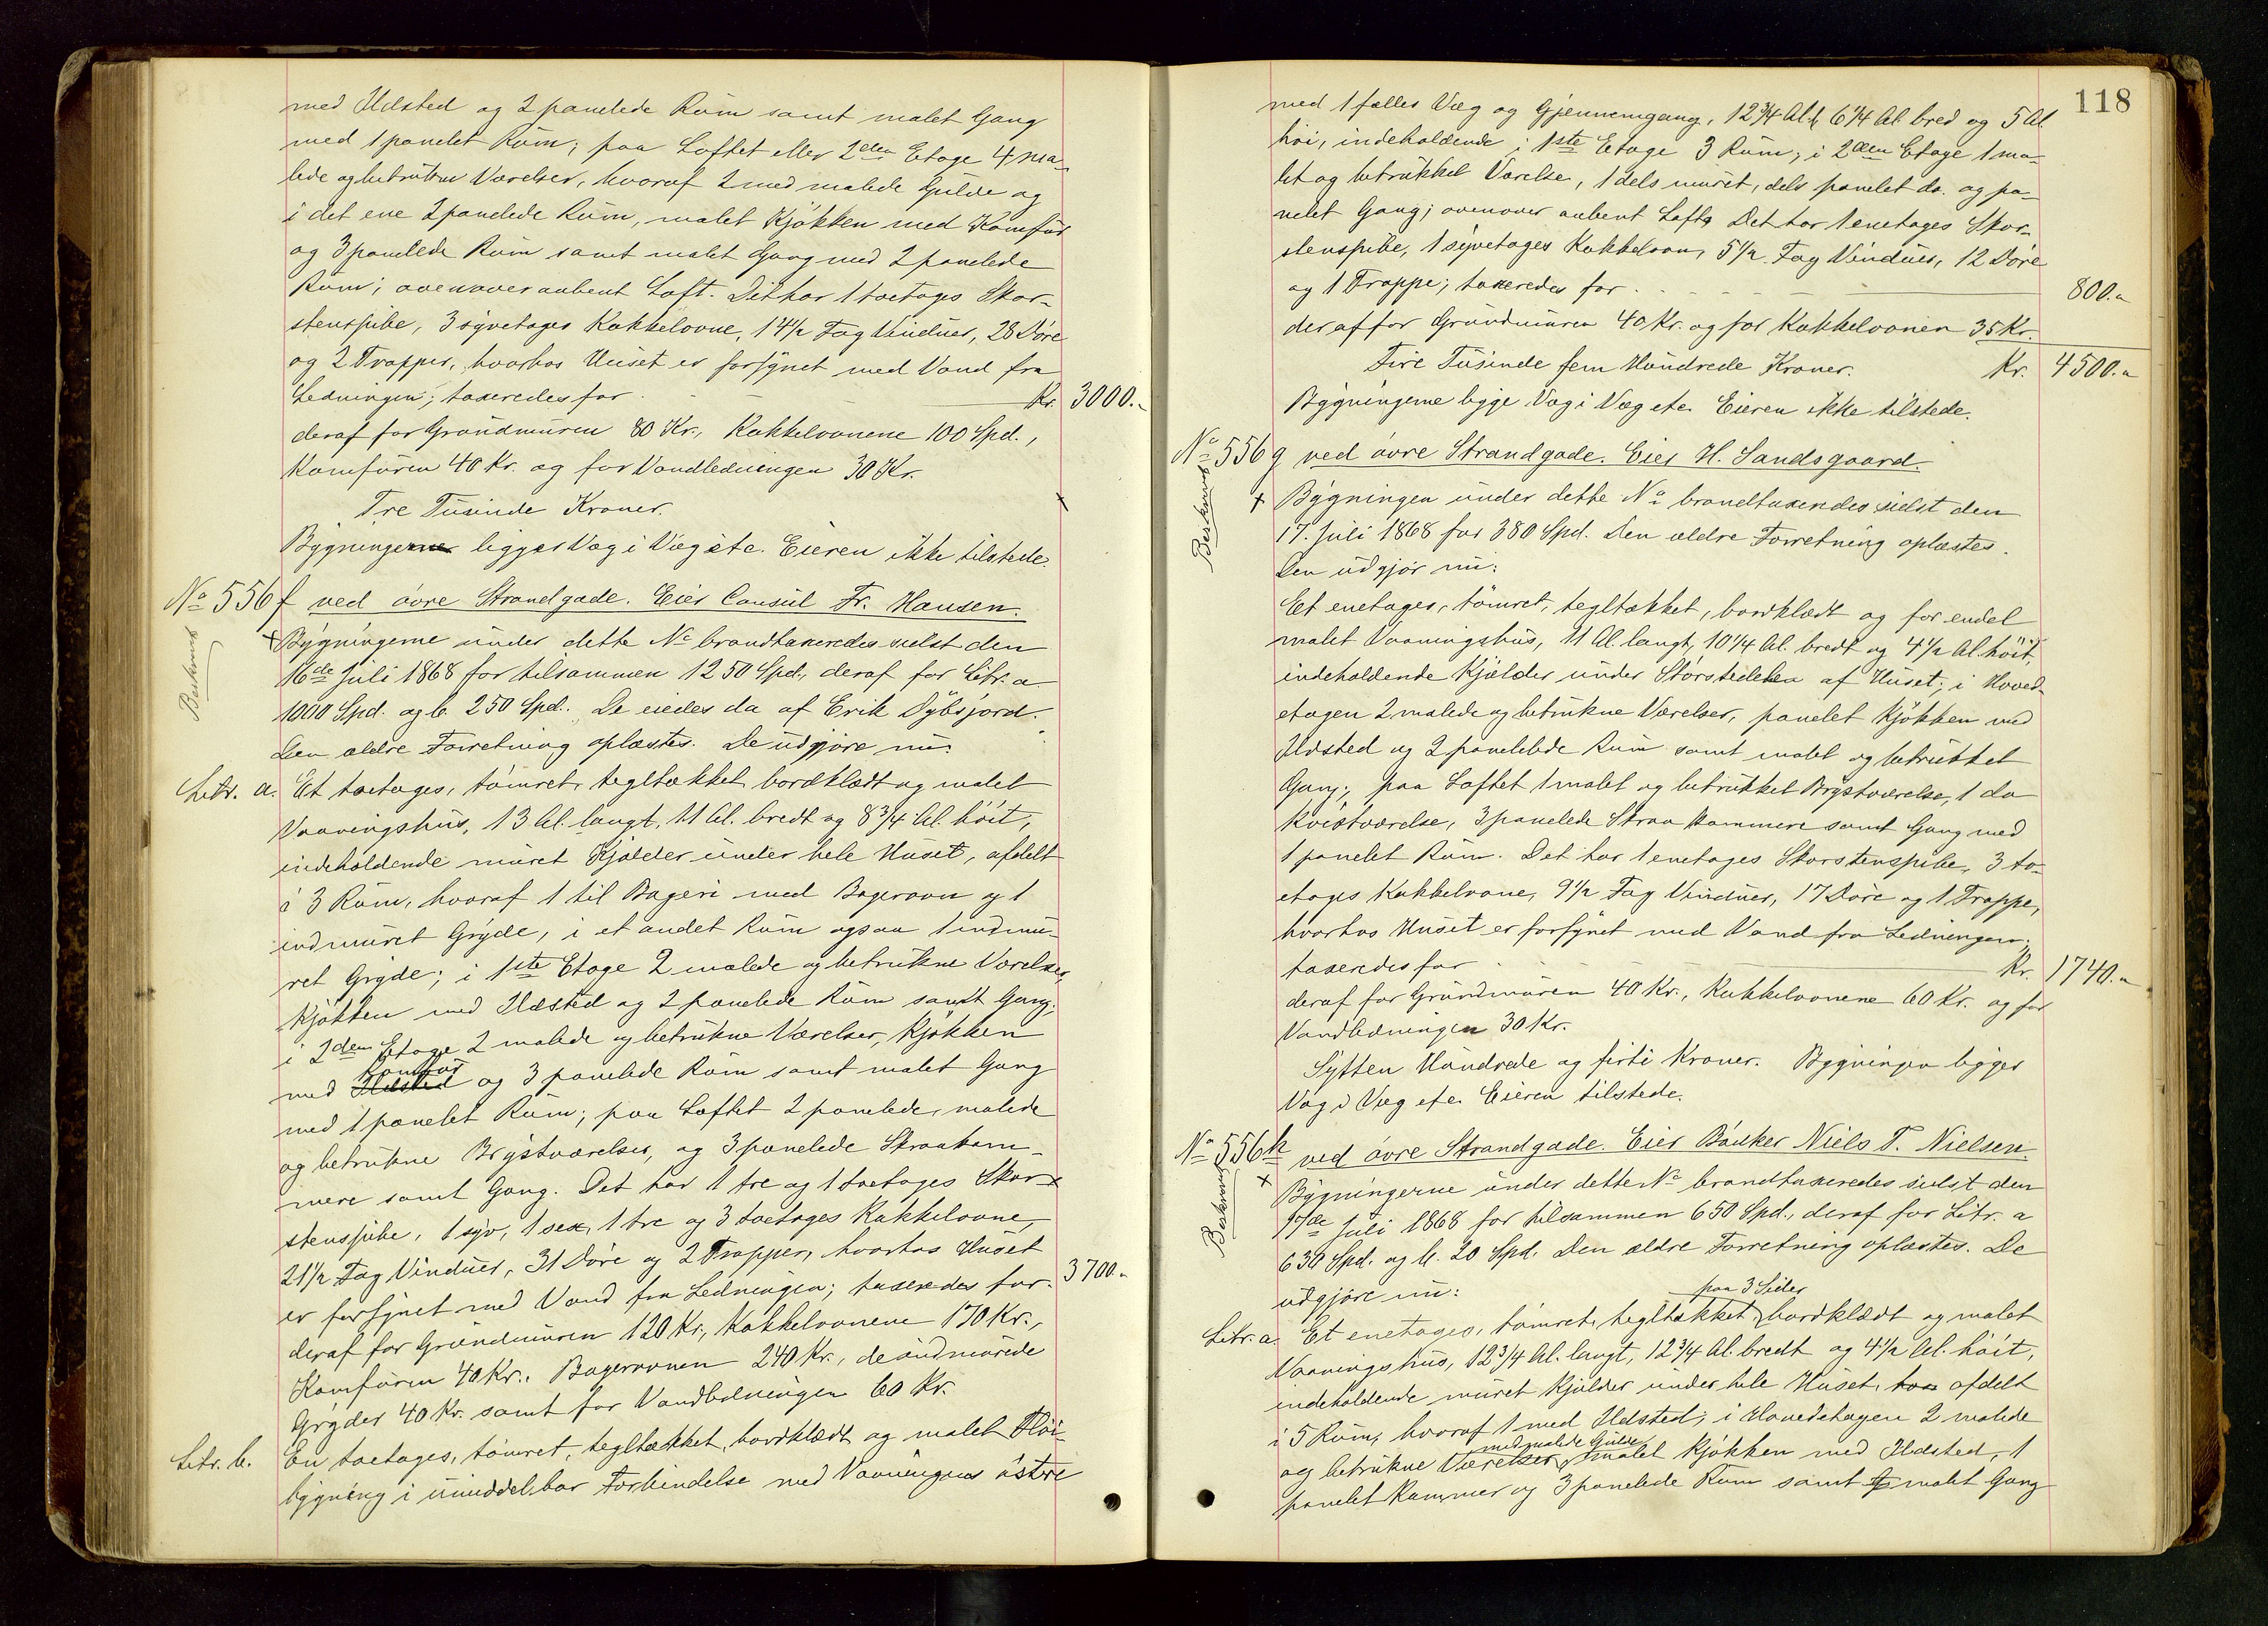 med Ildsted og 2 panelede Rům samt malet Gang
med 1 panelet Rům; paa Loftet eller 2den Etage 4 ma-
lede og betrukne Værelser, hvoraf 2 med malede Gulve og
i det ene 2 panelede Rům, malet Kjøkken med Komfür
og 3 panelede Rům samt malet Gang med 2 panelede
Rům; ovenover aabent Loft. Det har 1 toetages Skor-
stenspibe, 3 syvetages Kakkelovne, 14 1/2 Fag Vinduer, 28 Døre
og 2 Trapper, hvorhos Huset er forsynet med Vand fra
Ledningen; taxeredes for Kr. 3000.-
deraf for Grundmuren 80 Kr., Kakkelovnene 100 Spd.,
Komfuren 40 Kr. og for Vandledningen 30 Kr.
Tre Tusinde Kroner.
Bygningerne ligger Væg i Væg etc. Eieren ikke tilstede.
No 556 f ved øvre Strandgade. Eier Consul Fr. Hansen.
Beskrevet
Bygningerne under dette No brandtaxeredes sidst den
16de Juli 1868 for tilsammen 1250 Spd., deraf for Litr. a
1000 Spd. og b. 250 Spd. De eiedes da af Erik Dybsjord.
Den ældre Forretning oplæstes. De udgjøre nu:
Litr. a. Et toetages, tømret, tegltækket, bordklædt og malet
Vaaningshus, 13 Al. langt, 11 Al. bredt og 8 3/4 Al. høit,
indeholdende muret Kjælder under hele Huset, afdelt
i 3 Rum, hvoraf 1 til Bageri med Bagerovn og 1
indmuret Gryde, i et andet Rum ogsaa 1 indmu-
ret Gryde; i 1ste Etage 2 malede og betrukne Værelser,
Kjøkken med Ildsted og 2 panelede Rum samt Gang;
i 2den Etage 2 malede og betrukne Værelser, Kjøkken
Komfür
med Ildsted og 3 panelede Rum samt malet Gang
med 1 panelet Rum; paa Loftet 2 panelede, malede
og betrukne Brystværelser, og 3 panelede Skraakam-
mere samt Gang. Det har 1 tre og 1 toetages Skor-
stenspibe, 1 syv, 1 sex, 1 tre og 3 toetages Kakkelovne,
21 1/2 Fag Vinduer, 31 Døre og 2 Trapper, hvorhos Huset
er forsynet med Vand fra Ledningen; taxeredes for 3700.-
deraf for Grundmuren 120 Kr., Kakkelovnene 170 Kr.,
Komfuren 40 Kr., Bagerovnen 240 Kr., de indmurede
Gryder 40 Kr. samt for Vandledningen 60 Kr.
Litr. b. En toetages, tømret, tegltækket, bordklædt og malet Fløi-
bygning i umiddelbar Forbindelse med Vaaningens østre
118
med 1 fælles Væg og Gjennemgang, 12 3/4 Al. l, 6 1/4 Al. bred og 5 Al.
høi, indeholdende i 1ste Etage 3 Rum; i 2den Etage 1 ma-
let og betrukket Værelse, 1 dels muret, dels panelet do. og pa-
nelet Gang; ovenover aabent Loft. Det har 1 enetages Skor-
stenspibe, 1 syvetages Kakkelovn, 5 1/2 Fag Vinduer, 12 Døre
og 1 Trappe; taxeredes for 800.-
deraf for Grundmuren 40 Kr. og for Kakkelovnen 35 Kr.
Fire Tusinde fem Hundrede Kroner. Kr. 4500.-
Bygningerne ligge Væg i Væg etc. Eieren ikke tilstede.
No 556 g ved øvre Strandgade. Eier H. Sandsgaard.
Beskrevet
Bygningen under dette No brandtaxeredes sidst den
17. Juli 1868 for 380 Spd. Den ældre Forretning oplæstes.
Den udgjør nu:
Et enetages, tømret, tegltækket, bordklædt og for endel
malet Vaaningshus, 11 Al. langt, 10 1/4 Al. bredt og 4 1/2 Al. høit,
indeholdende Kjælder under Størstedelen af Huset; i Hoved-
etagen 2 malede og betrukne Værelser, panelet Kjøkken med
Ildsted og 2 panelede Rum samt malet og betrukket
Gang; paa Loftet 1 malet og betrukket Brystværelse, 1 do
Kvistværelse, 3 panelede Skraa Kammere samt Gang med
1 panelet Rum. Det har 1 enetages Skorstenspibe, 3 to-
etages Kakkelovne, 9 1/2 Fag Vinduer, 17 Døre og 1 Trappe,
hvorhos Huset er forsynet med Vand fra Ledningen;
taxeredes for Kr. 1740.-
deraf for Grundmuren 40 Kr., Kakkelovnene 60 Kr. og for
Vandledningen 30 Kr.
Sytten Hundrede og firti Kroner. Bygningen ligger
Væg i Væg etc. Eieren tilstede.
No 556 h ved øvre Strandgade. Eier Bødker Niels T. Nielsen.
Beskrevet
Bygningerne under dette No brandtaxeredes sidst den
17de Juli 1868 for tilsammen 650 Spd., deraf for Litr. a
630 Spd. og b. 20 Spd. Den ældre Forretning oplæstes. De
udgjøre nu:
paa 3 Sider
Litr. a. Et enetages, tømret, tegltækket, bordklædt og malet
Vaaningshus, 12 3/4 Al. langt, 12 3/4 Al. bredt og 4 1/2 Al. høit,
indeholdende muret Kjælder under hele Huset, afdelt
i 5 Rum, hvoraf 1 med Ildsted; i Hovedetagen 2 malede
med malede Gulve
og betrukne Værelser, malet Kjøkken med Ildsted, 1
panelet Kammer og 3 panelede Rum samt malet Gang